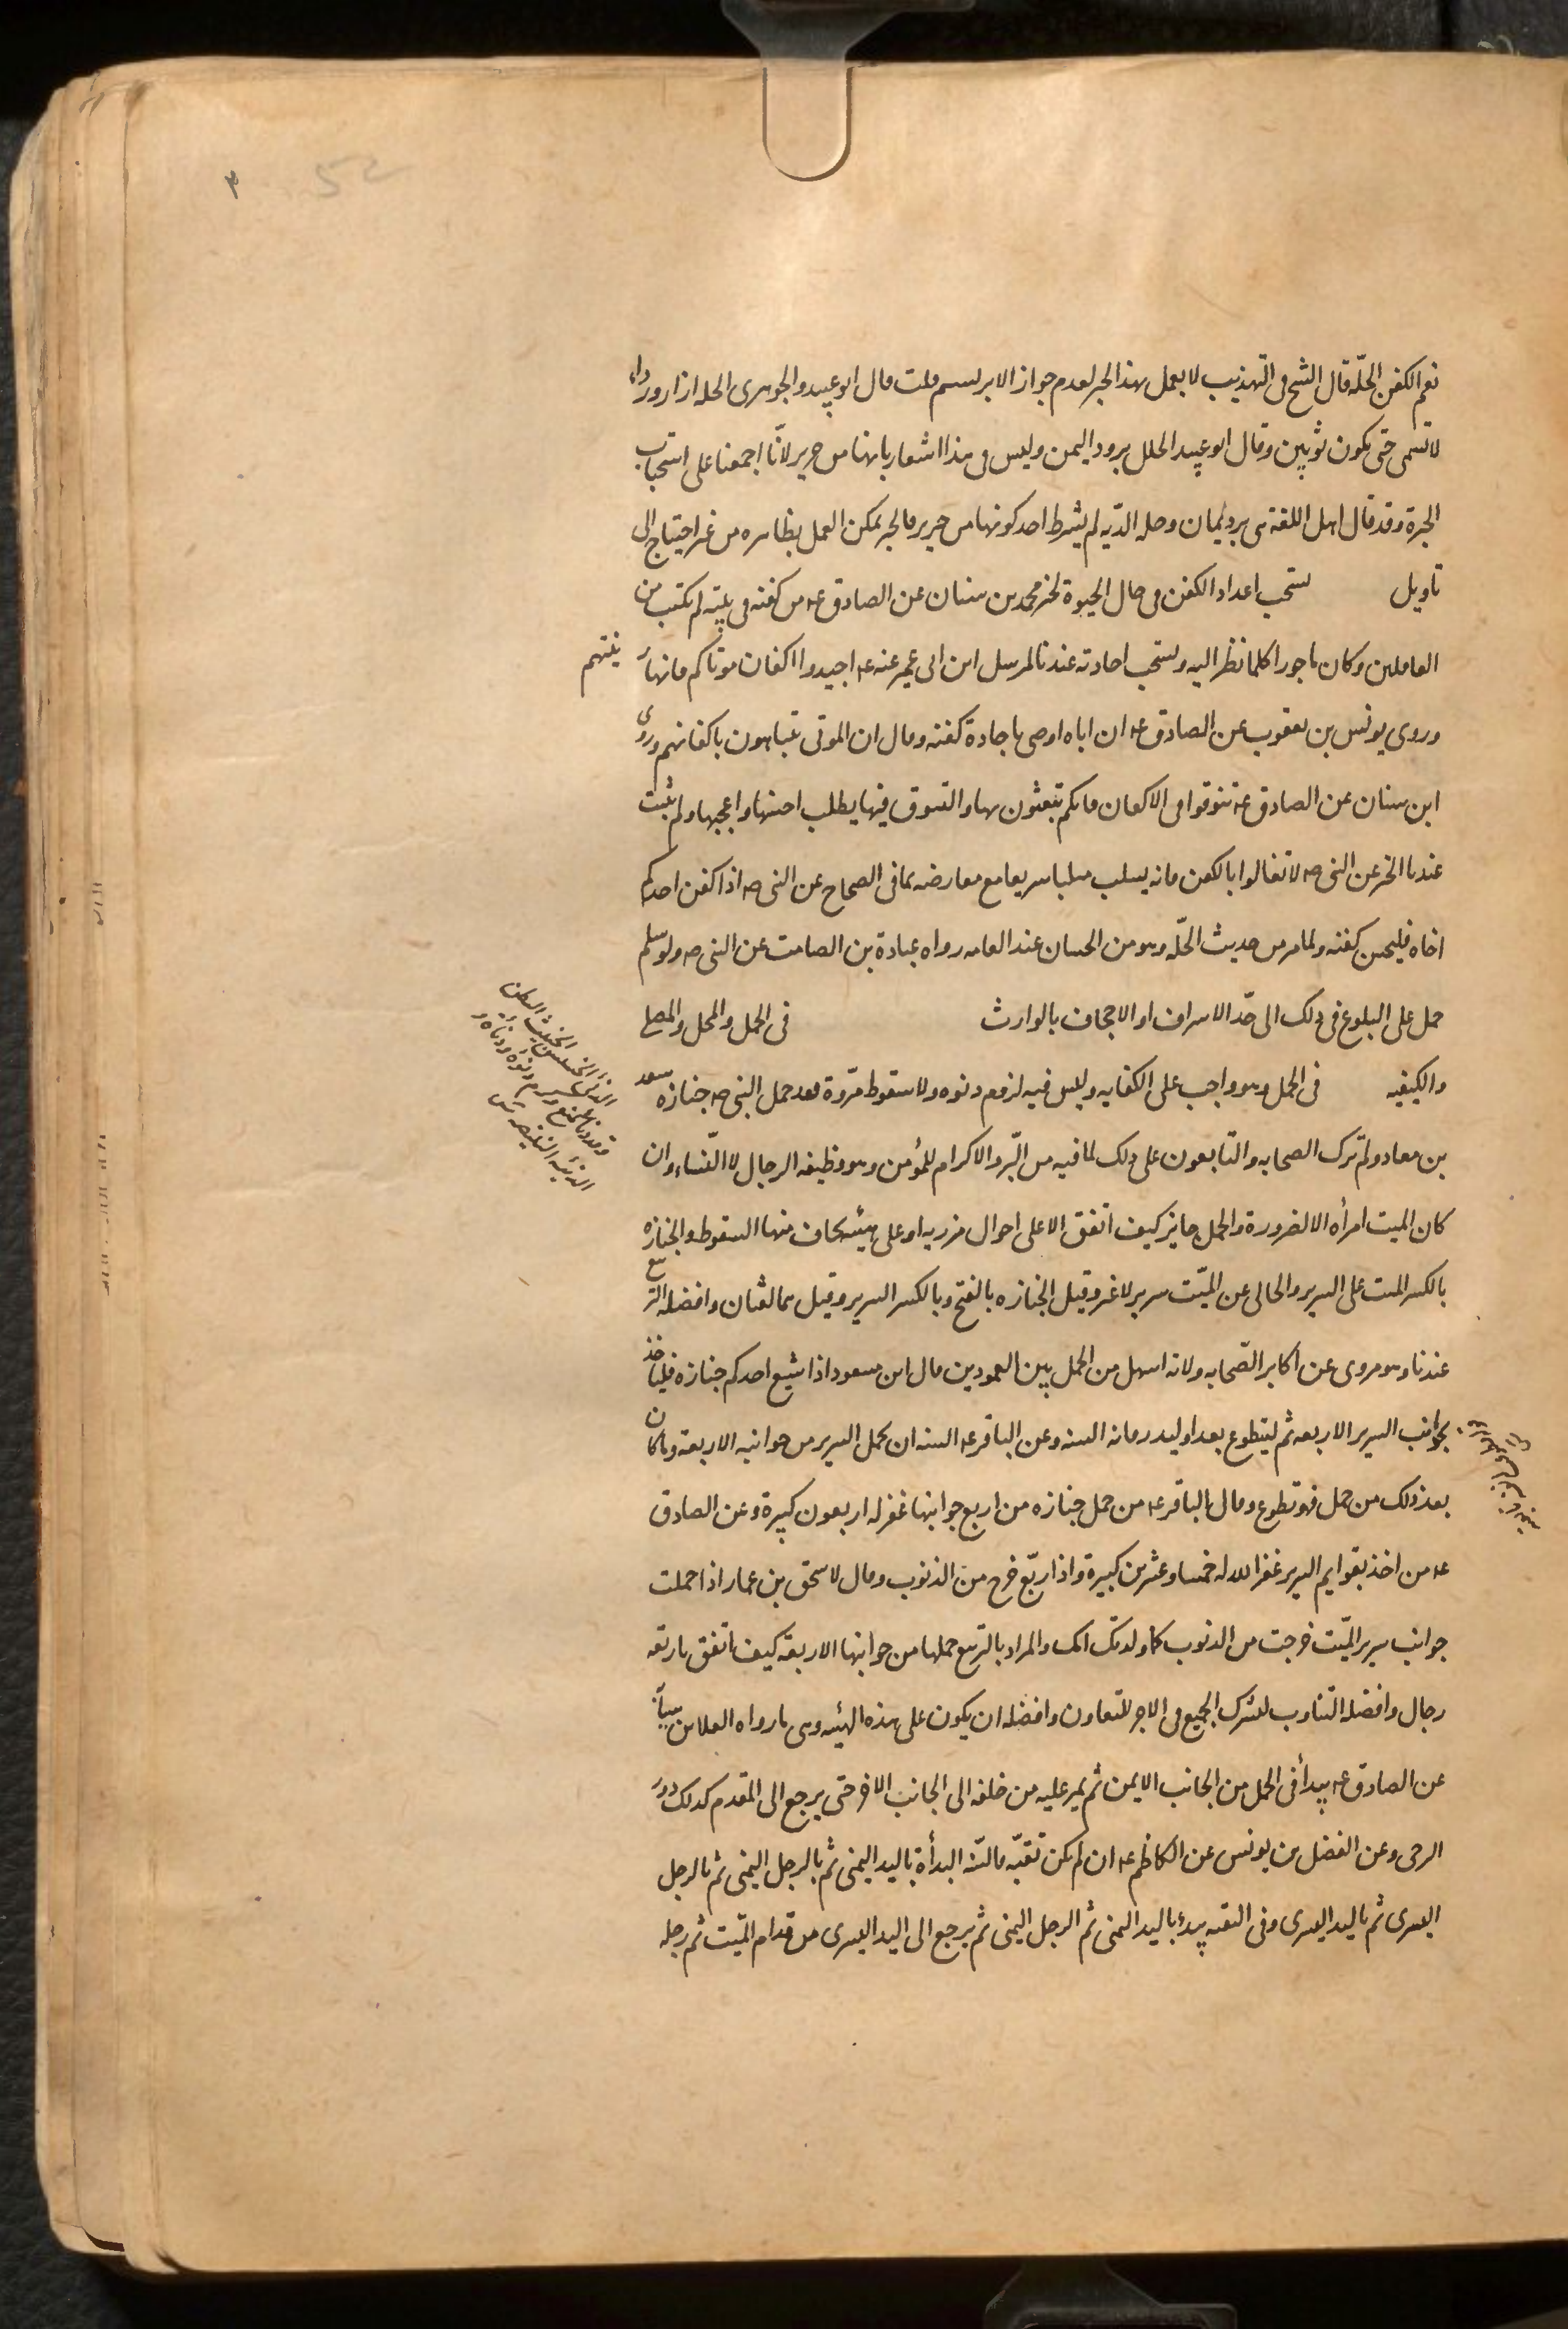 نعم الكفن الحلّة قال الشيخ فى التهذيب لا يعمل بهذا الخبر لعدم جواز الابريسم قلت قال ابو عبيد والجوهرى الحلة ازار ورداء
لا تسمى حتى يكون ثوبين وقال ابو عبيد الحلل برود اليمن وليس فى هذا اشعار بانها من حرير لانّا اجمعنا على استحباب
الحبرة وقد قال اهل اللغة هى برد يمان وحلة الدّية لم يشترط احد كونها من حرير فالخبر يمكن العمل بظاهره من غير احتياج الى
تاويل يستحب اعداد الكفن فى حال الحيوة لخبر محمد بن سنان عن الصادق عه من كفنه فى بيته لم يكتب من
العاملين وكان ماجورا كلما نظر اليه ويستحب اجادته عندنا لمرسل ابن ابى عمير عنه عه اجيدوا اكفان موتاكم فانها زينتهم
وروى يونس بن يعقوب عن الصادق عه ان اباه اوصى باجادة كفنه وقال ان الموتى يتباهون باكفانهم وروى
ابن سنان عن الصادق عه تنوقوا فى الاكفان فانكم تبعثون بها والتنوق فيها يطلب احسنها واعجبها ولم يثبت
عندنا الخبر عن النبى صه لا تغالوا بالكفن فانه يسلب سلبا سريعا مع معارضه بما فى الصحاح عن النبى صه اذا كفن احدكم
اخاه فليحسن كفنه ولما مر من حديث الحلّة وهو من الحسان عند العامه رواه عبادة بن الصامت عن النبى صه ولو سلم
حمل على البلوغ فى ذلك الى حدّ الاسراف او الاجحاف بالوارث فى الحمل والمحل والمصلى
والكيفيه فى الحمل وهو واجب على الكفايه وليس فيه لزوم دنوه ولا سقوط مروّة فقد حمل النبى صه جنازه سعد
بن معاد ولم تزل الصحابه والتّابعون على ذلك لما فيه من البّر والاكرام للمؤمن وهو وظيفه الرجال لا النّساء وان
كان الميت امرأه الا لضرورة والحمل جايز كيف اتفق الا على احوال مزريه او على هيئه يخاف منها السقوط والجنازه
بالكسر الميت على السرير والخالى عن الميّت سرير لا غير وقيل الجنازه بالفتح وبالكسر السرير وقيل هما لغتان وافضله التربيع
عندنا وهو مروى عن اكابر الصّحابه ولانه اسهل من الحمل بين العمودين قال ابن مسعود اذا شيع احدكم جنازه فلياخذ
بجوانب السرير الاربعه ثم ليتطوع بعد او ليذر فانه السنه وعن الباقر عه السنه ان يحمل السرير من جوانبه الاربعه وما كان
بعد ذلك من حمل فهو تطوع وقال الباقر عه من حمل جنازه من اربع جوانبها غفر له اربعون كبيرة وعن الصادق
عه من اخذ بقوايم السرير غفر الله له خمسا وعشرين كبيرة واذا ربّع خرج من الذنوب وقال لاسحق بن عمار اذا حملت
جوانب سرير الميّت خرجت من الذنوب كما ولدتك امك والمراد بالتربيع حملها من جوانبها الاربعة كيف اتفق باربعه
رجال وافضله التناوب ليشترك الجميع فى الاجر للتعاون وافضله ان يكون على هذه الهيئه وهى ما رواه العلا بن سيابه
عن الصادق عه يبدأ فى الحمل من الجانب الايمن ثم يمر عليه من خلفه الى الجانب الاخر حتى يرجع الى المقدم كذلك دور
الرحى وعن الفضل بن يونس عن الكاظم عه ان لم يكن تقيّه فالسّنه البدأة باليد اليمنى ثم بالرجل اليمنى ثم بالرجل
اليسرى ثم باليد اليسرى وفى التقيه يبدء باليد اليمنى ثم الرجل اليمنى ثم يرجع الى اليد اليسرى من قدام الميّت ثم رجله